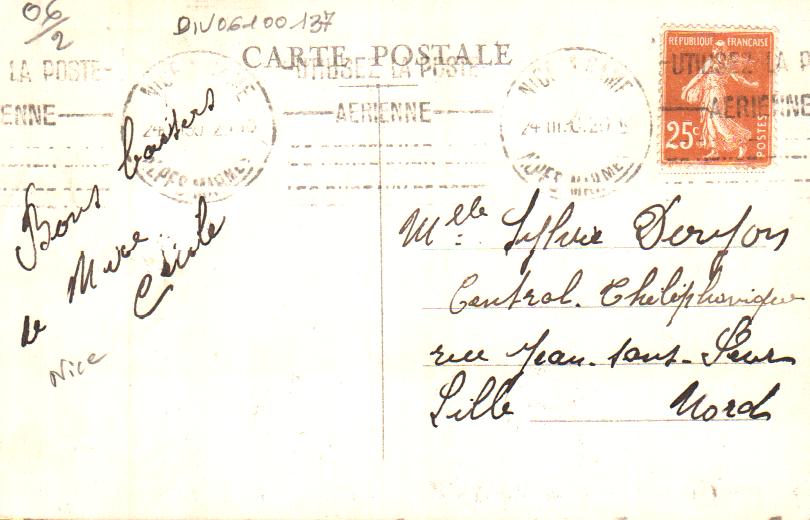 06/2
DIV06100137
CARTE POSTALE
LA POSTE
UTILISEZ LA POSTE
UTILISEZ LA P
ENNE
AERIENNE
AERIENNE
NICE
NICE
24 III 30
ALPES MARMES
ALPES MARMES
REPUBLIQUE FRANÇAISE
25c
POSTES
Bons baisers
de
Cécile
Nice
Mlle Sylvie
Central. Théléphonique
rue Jean-sans-Peur
Lille Nord